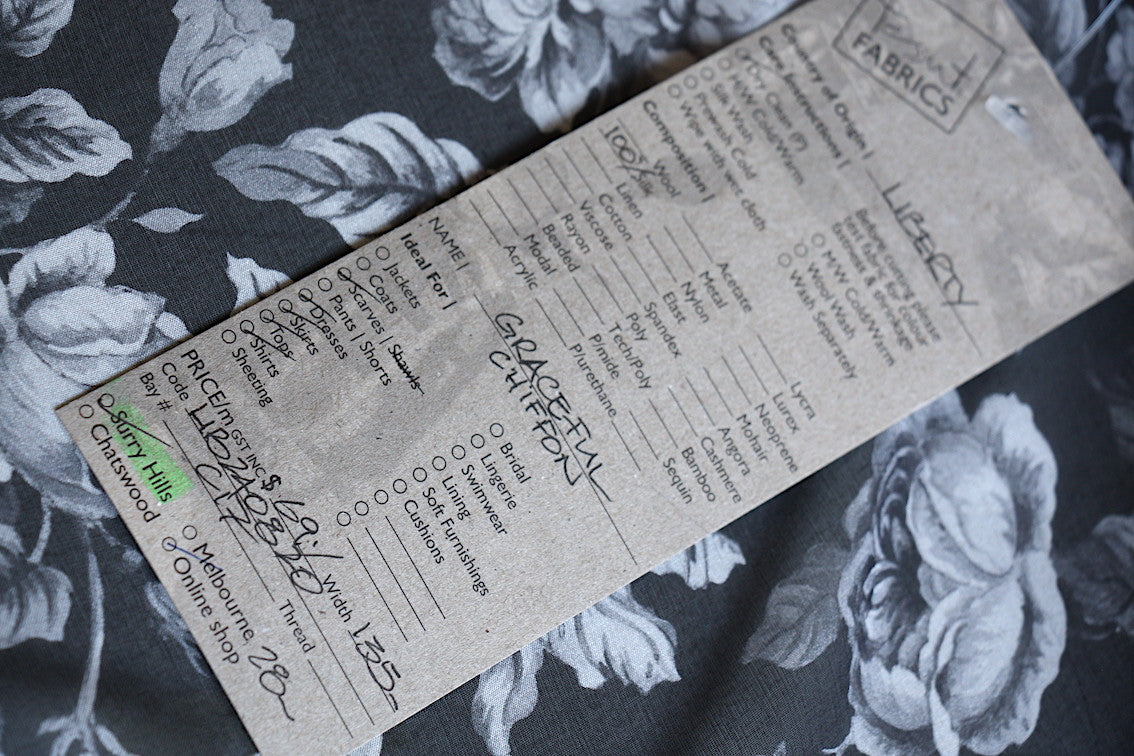 FABRICS
Country of Origin | LIBERTY
Care Instructions |
Dry Clean (P)
H/W Cold/Warm
Silk Wash
Prewash Cold
Wipe with wet cloth
Before cutting please
test fabric for colour
fastness & shrinkage
M/W Cold/Warm
Wool Wash
Wash Separately
Composition |
Wool
100% Silk
Linen
Cotton
Viscose
Rayon
Beaded
Modal
Acrylic
Acetate
Metal
Nylon
Elast
Spandex
Poly
Tech/Poly
P/mide
P/urethane
Lycra
Lurex
Neoprene
Mohair
Angora
Cashmere
Bamboo
Sequin
NAME | GRACEFUL
CHIFFON
Ideal For |
Jackets
Coats
Scarves | Shawls
Pants | Shorts
Dresses
Skirts
Tops
Shirts
Sheeting
Bridal
Lingerie
Swimwear
Lining
Soft Furnishings
Cushions
PRICE/m GST INC $ 69./ Width 135
Code LIB240830
Bay # C17 Thread
Surry Hills
Chatswood
Melbourne. 28
Online shop